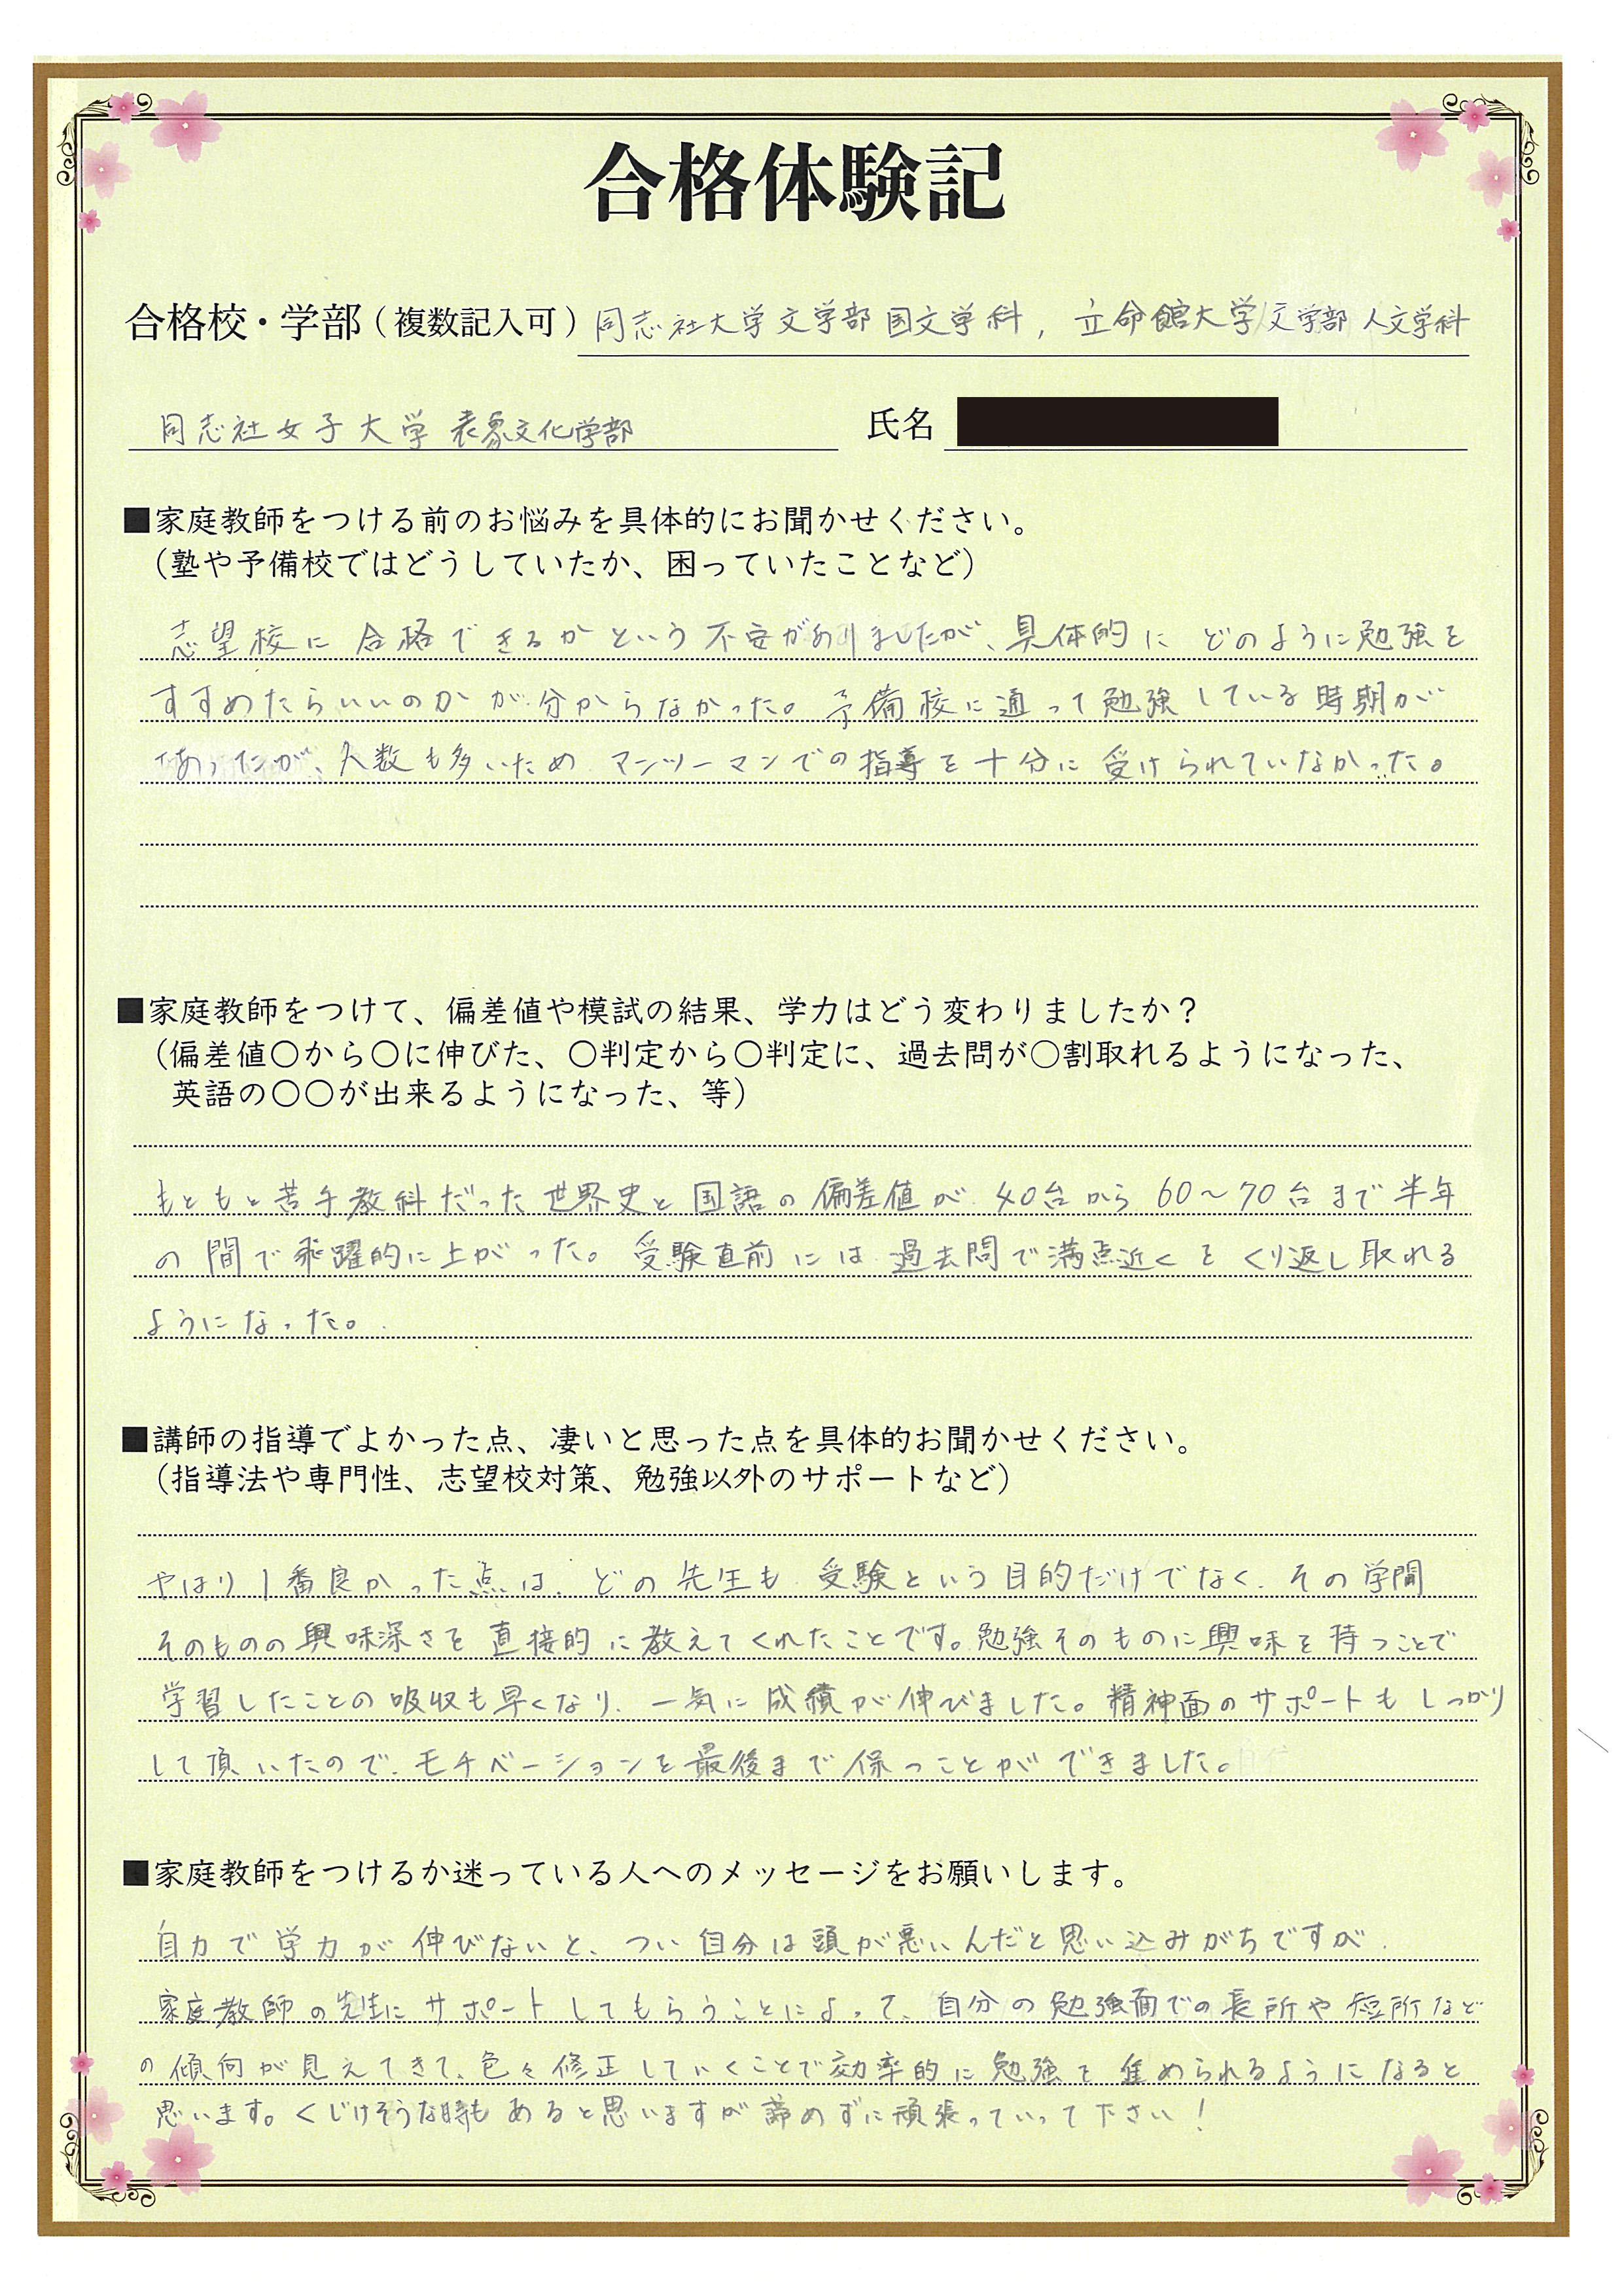 合格体験記
合格校・学部（複数記入可）同志社大学文学部国文学科, 立命館大学文学部人文学科
同志社女子大学 表象文化学部 氏名
■家庭教師をつける前のお悩みを具体的にお聞かせください。
（塾や予備校ではどうしていたか、困っていたことなど）
志望校に合格できるかという不安がありましたが、具体的にどのように勉強を
すすめたらいいのかが分からなかった。予備校に通って勉強している時期が
あったが、人数も多いためマンツーマンでの指導を十分に受けられていなかった。
■家庭教師をつけて、偏差値や模試の結果、学力はどう変わりましたか？
（偏差値〇から〇に伸びた、〇判定から〇判定に、過去問が〇割取れるようになった、
英語の〇〇が出来るようになった、等）
もともと苦手教科だった世界史と国語の偏差値が40台から60～70台まで半年
の間で飛躍的に上がった。受験直前には過去問で満点近くをくり返し取れる
ようになった。
■講師の指導でよかった点、凄いと思った点を具体的お聞かせください。
（指導法や専門性、志望校対策、勉強以外のサポートなど）
やはり1番良かった点は、どの先生も受験という目的だけでなく、その学問
そのものの興味深さを直接的に教えてくれたことです。勉強そのものに興味を持つことで
学習したことの吸収も早くなり、一気に成績が伸びました。精神面のサポートもしっかり
して頂いたので、モチベーションを最後まで保つことができました。
■家庭教師をつけるか迷っている人へのメッセージをお願いします。
自力で学力が伸びないと、つい自分は頭が悪いんだと思い込みがちですが、
家庭教師の先生にサポートしてもらうことによって、自分の勉強面での長所や短所など
の傾向が見えてきて、色々修正していくことで効率的に勉強を進められるようになると
思います。くじけそうな時もあると思いますが諦めずに頑張っていって下さい！